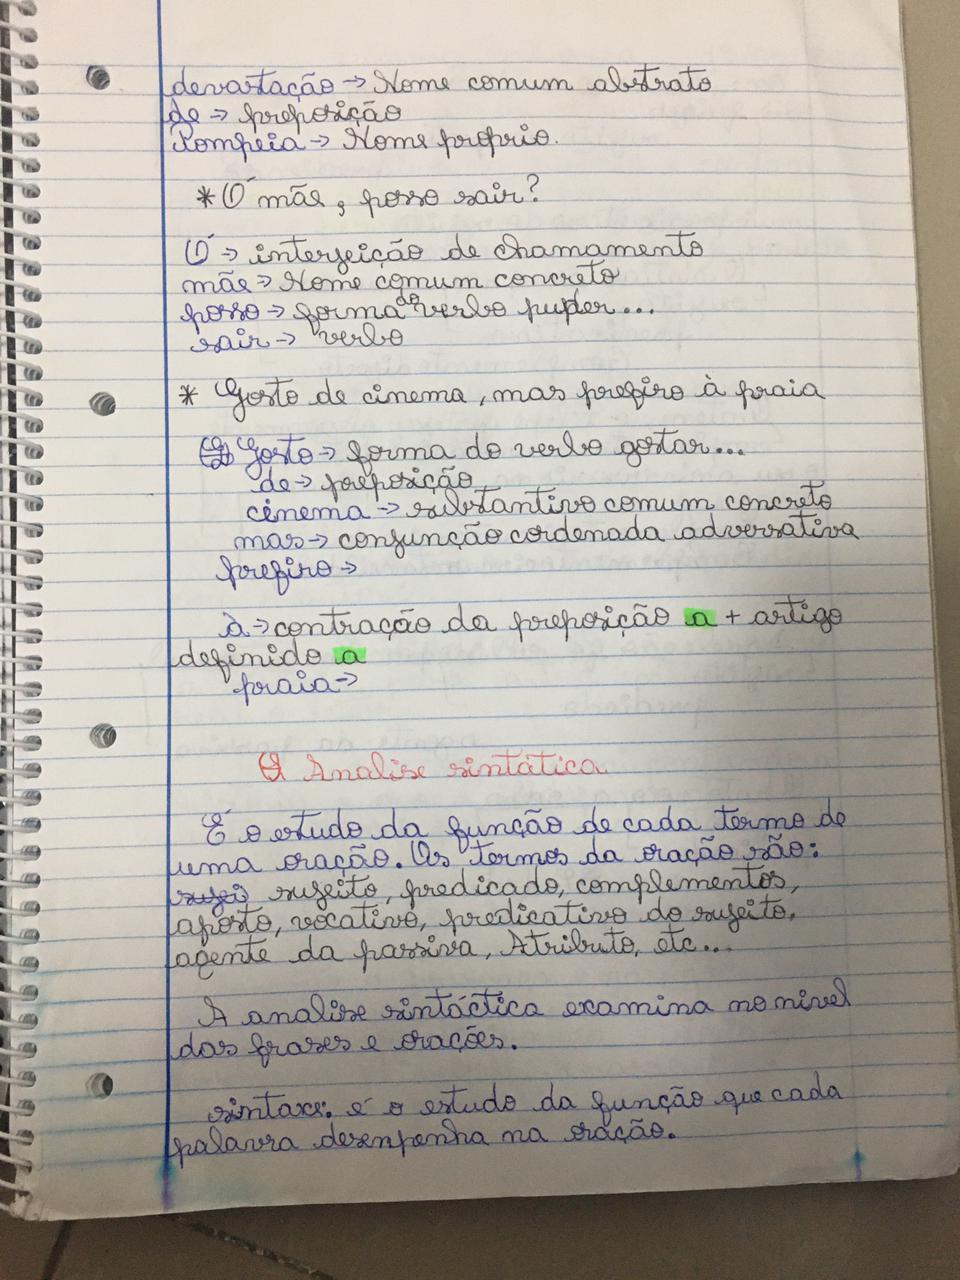 devastação → Nome comum abstrato
de → preposição
Pompeia → Nome proprio.
* Ó mãe, posso sair?
Ó → interjeição de chamamento
mãe → Nome comum concreto
posso → forma do verbo puder...
sair → verbo
* Gosto de cinema, mas prefiro à praia
Gosto → forma do verbo gostar...
de → preposição
cinema → substantivo comum concreto
mas → conjunção cordenada adverssativa
prefiro →
à → contração da preposição a + artigo
definido a
praia →
Analise sintática
É o estudo da função de cada termo de
uma oração. Os termos da oração são:
sujei sujeito, predicado, complementos,
aposto, vocativo, predicativo do sujeito,
agente da passiva, Atributo, etc...
A analise sintáctica examina no nivel
das frases e orações.
sintaxe: é o estudo da função que cada
palavra desenpenha na oração.